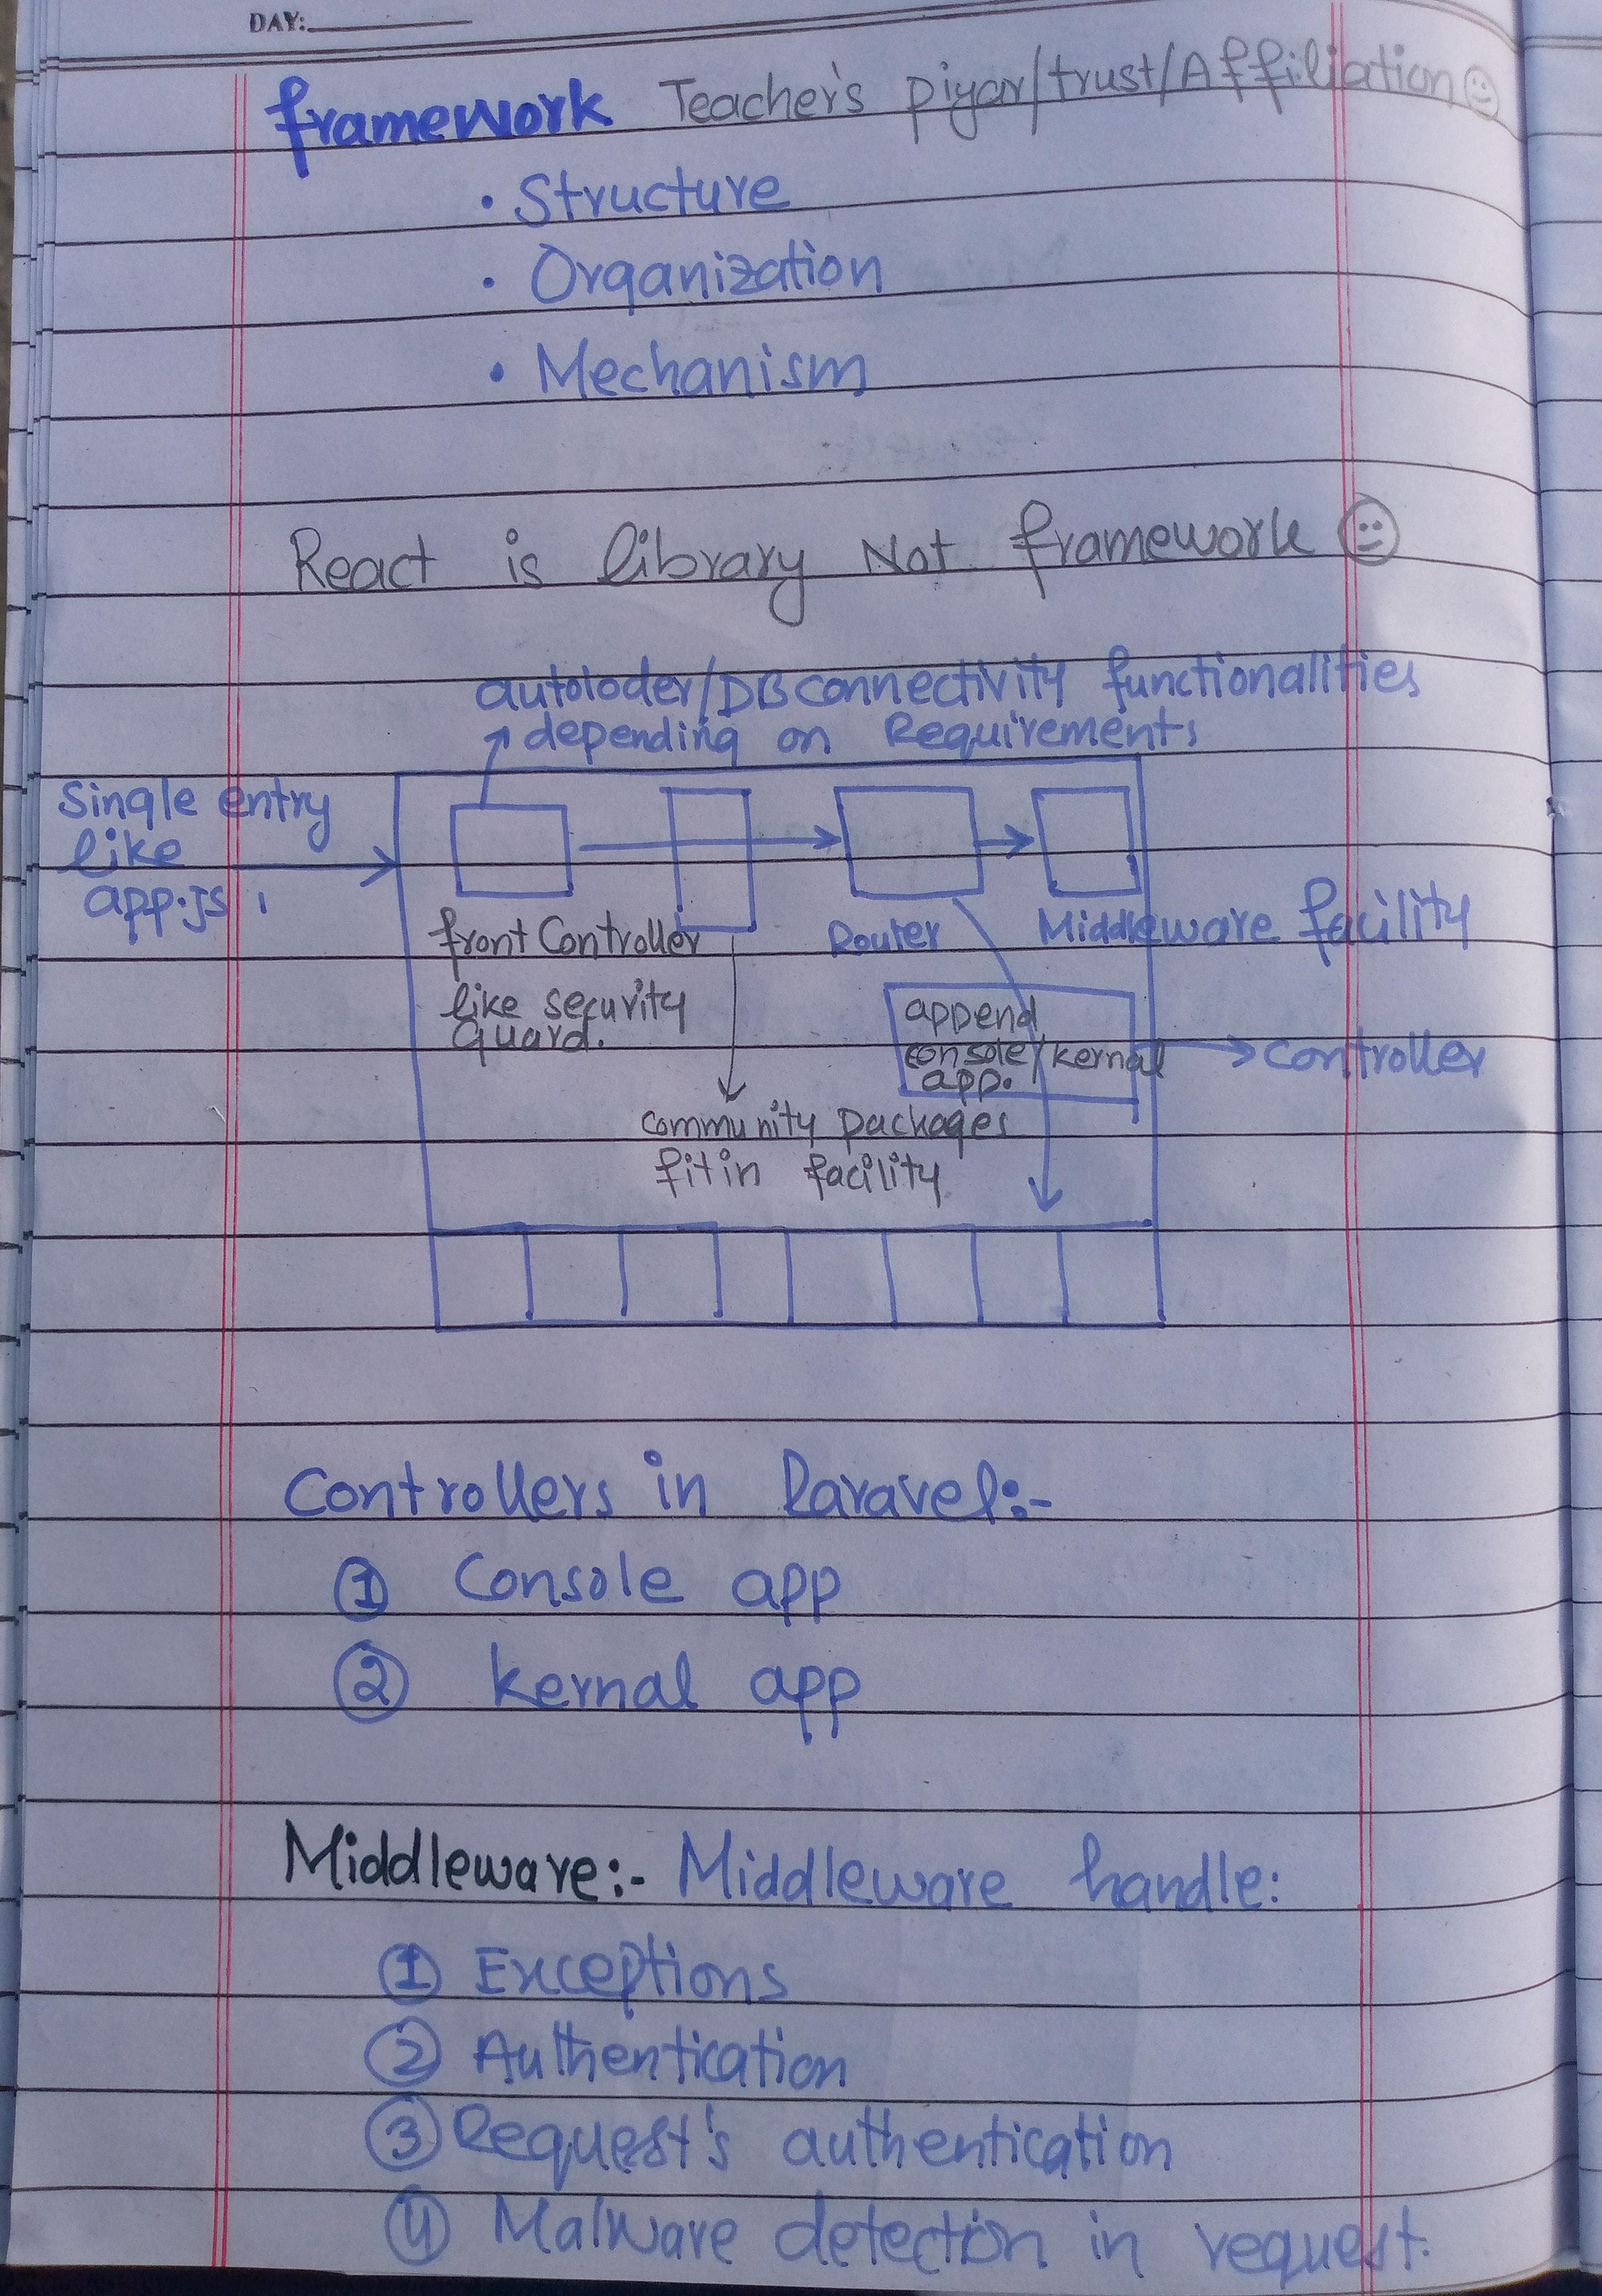 DAY:
framework Teacher's piyar/trust/Affiliation
• Structure
• Organization
• Mechanism
React is library Not framework
autoloder/DB connectivity functionalities
depending on Requirements
Single entry
like
app.js
front Controller
like security
Guard.
Router
Middleware facility
append
console/kernal
app.
controller
community packages
fit in facility
Controllers in Laravel:-
① Console app
② kernal app
Middleware:- Middleware handle:
① Exceptions
② Authentication
③ Request's authentication
④ Malware detection in request.